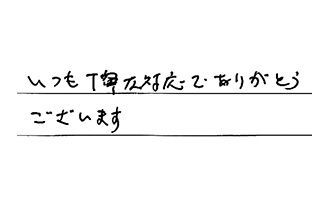 いつも丁寧な対応でありがとう
ございます